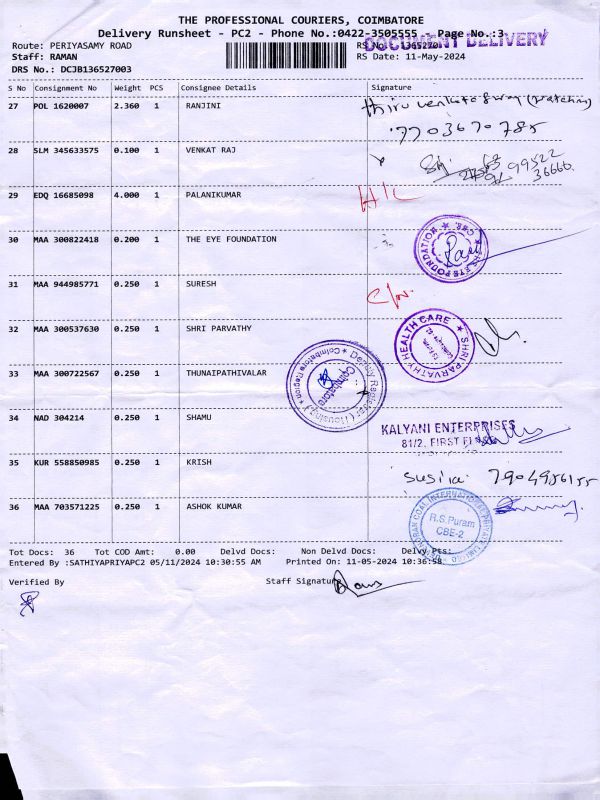 THE PROFESSIONAL COURIERS, COIMBATORE
Delivery Runsheet - PC2 - Phone No.:0422-3505555 - Page No.:3
DOCUMENT DELIVERY
Route: PERIYASAMY ROAD RS No.:1365270
Staff: RAMAN RS Date: 11-May-2024
DRS No.: DCJB136527003
S No Consignment No Weight PCS Consignee Details Signature
27 POL 1620007 2.360 1 RANJINI
7703670785
28 SLM 345633575 0.100 1 VENKAT RAJ
99522
36666
29 EDQ 16685098 4.000 1 PALANIKUMAR
30 MAA 300822418 0.200 1 THE EYE FOUNDATION
THE EYE FOUNDATION
31 MAA 944985771 0.250 1 SURESH
32 MAA 300537630 0.250 1 SHRI PARVATHY
SHRI PARVATHY HEALTH CARE
33 MAA 300722567 0.250 1 THUNAIPATHIVALAR
Deputy Registrar (Housing)
Coimbatore Region
Coimbatore
34 NAD 304214 0.250 1 SHAMU
KALYANI ENTERPRISES
81/2, FIRST
35 KUR 558850985 0.250 1 KRISH
Susila 7904956155
36 MAA 703571225 0.250 1 ASHOK KUMAR
COAL INTERNATIONAL PRIVATE LIMITED
R.S.Puram
CBE-2
Tot Docs: 36 Tot COD Amt: 0.00 Delvd Docs: Non Delvd Docs: Delvy Pts:
Entered By :SATHIYAPRIYAPC2 05/11/2024 10:30:55 AM Printed On: 11-05-2024 10:36:58
Verified By Staff Signature